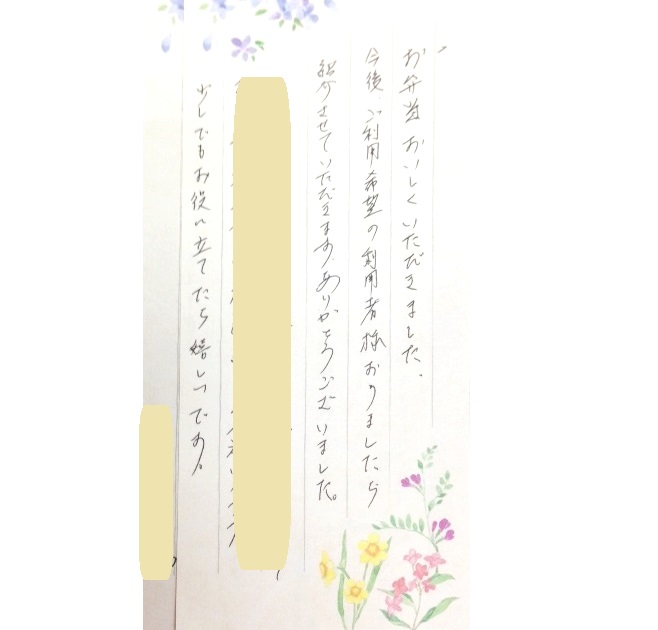 お弁当おいしくいただきました。
今後、ご利用希望の利用者様おりましたら
紹介させていただきます。ありがとうございました。
少しでもお役に立てたら嬉しいです。